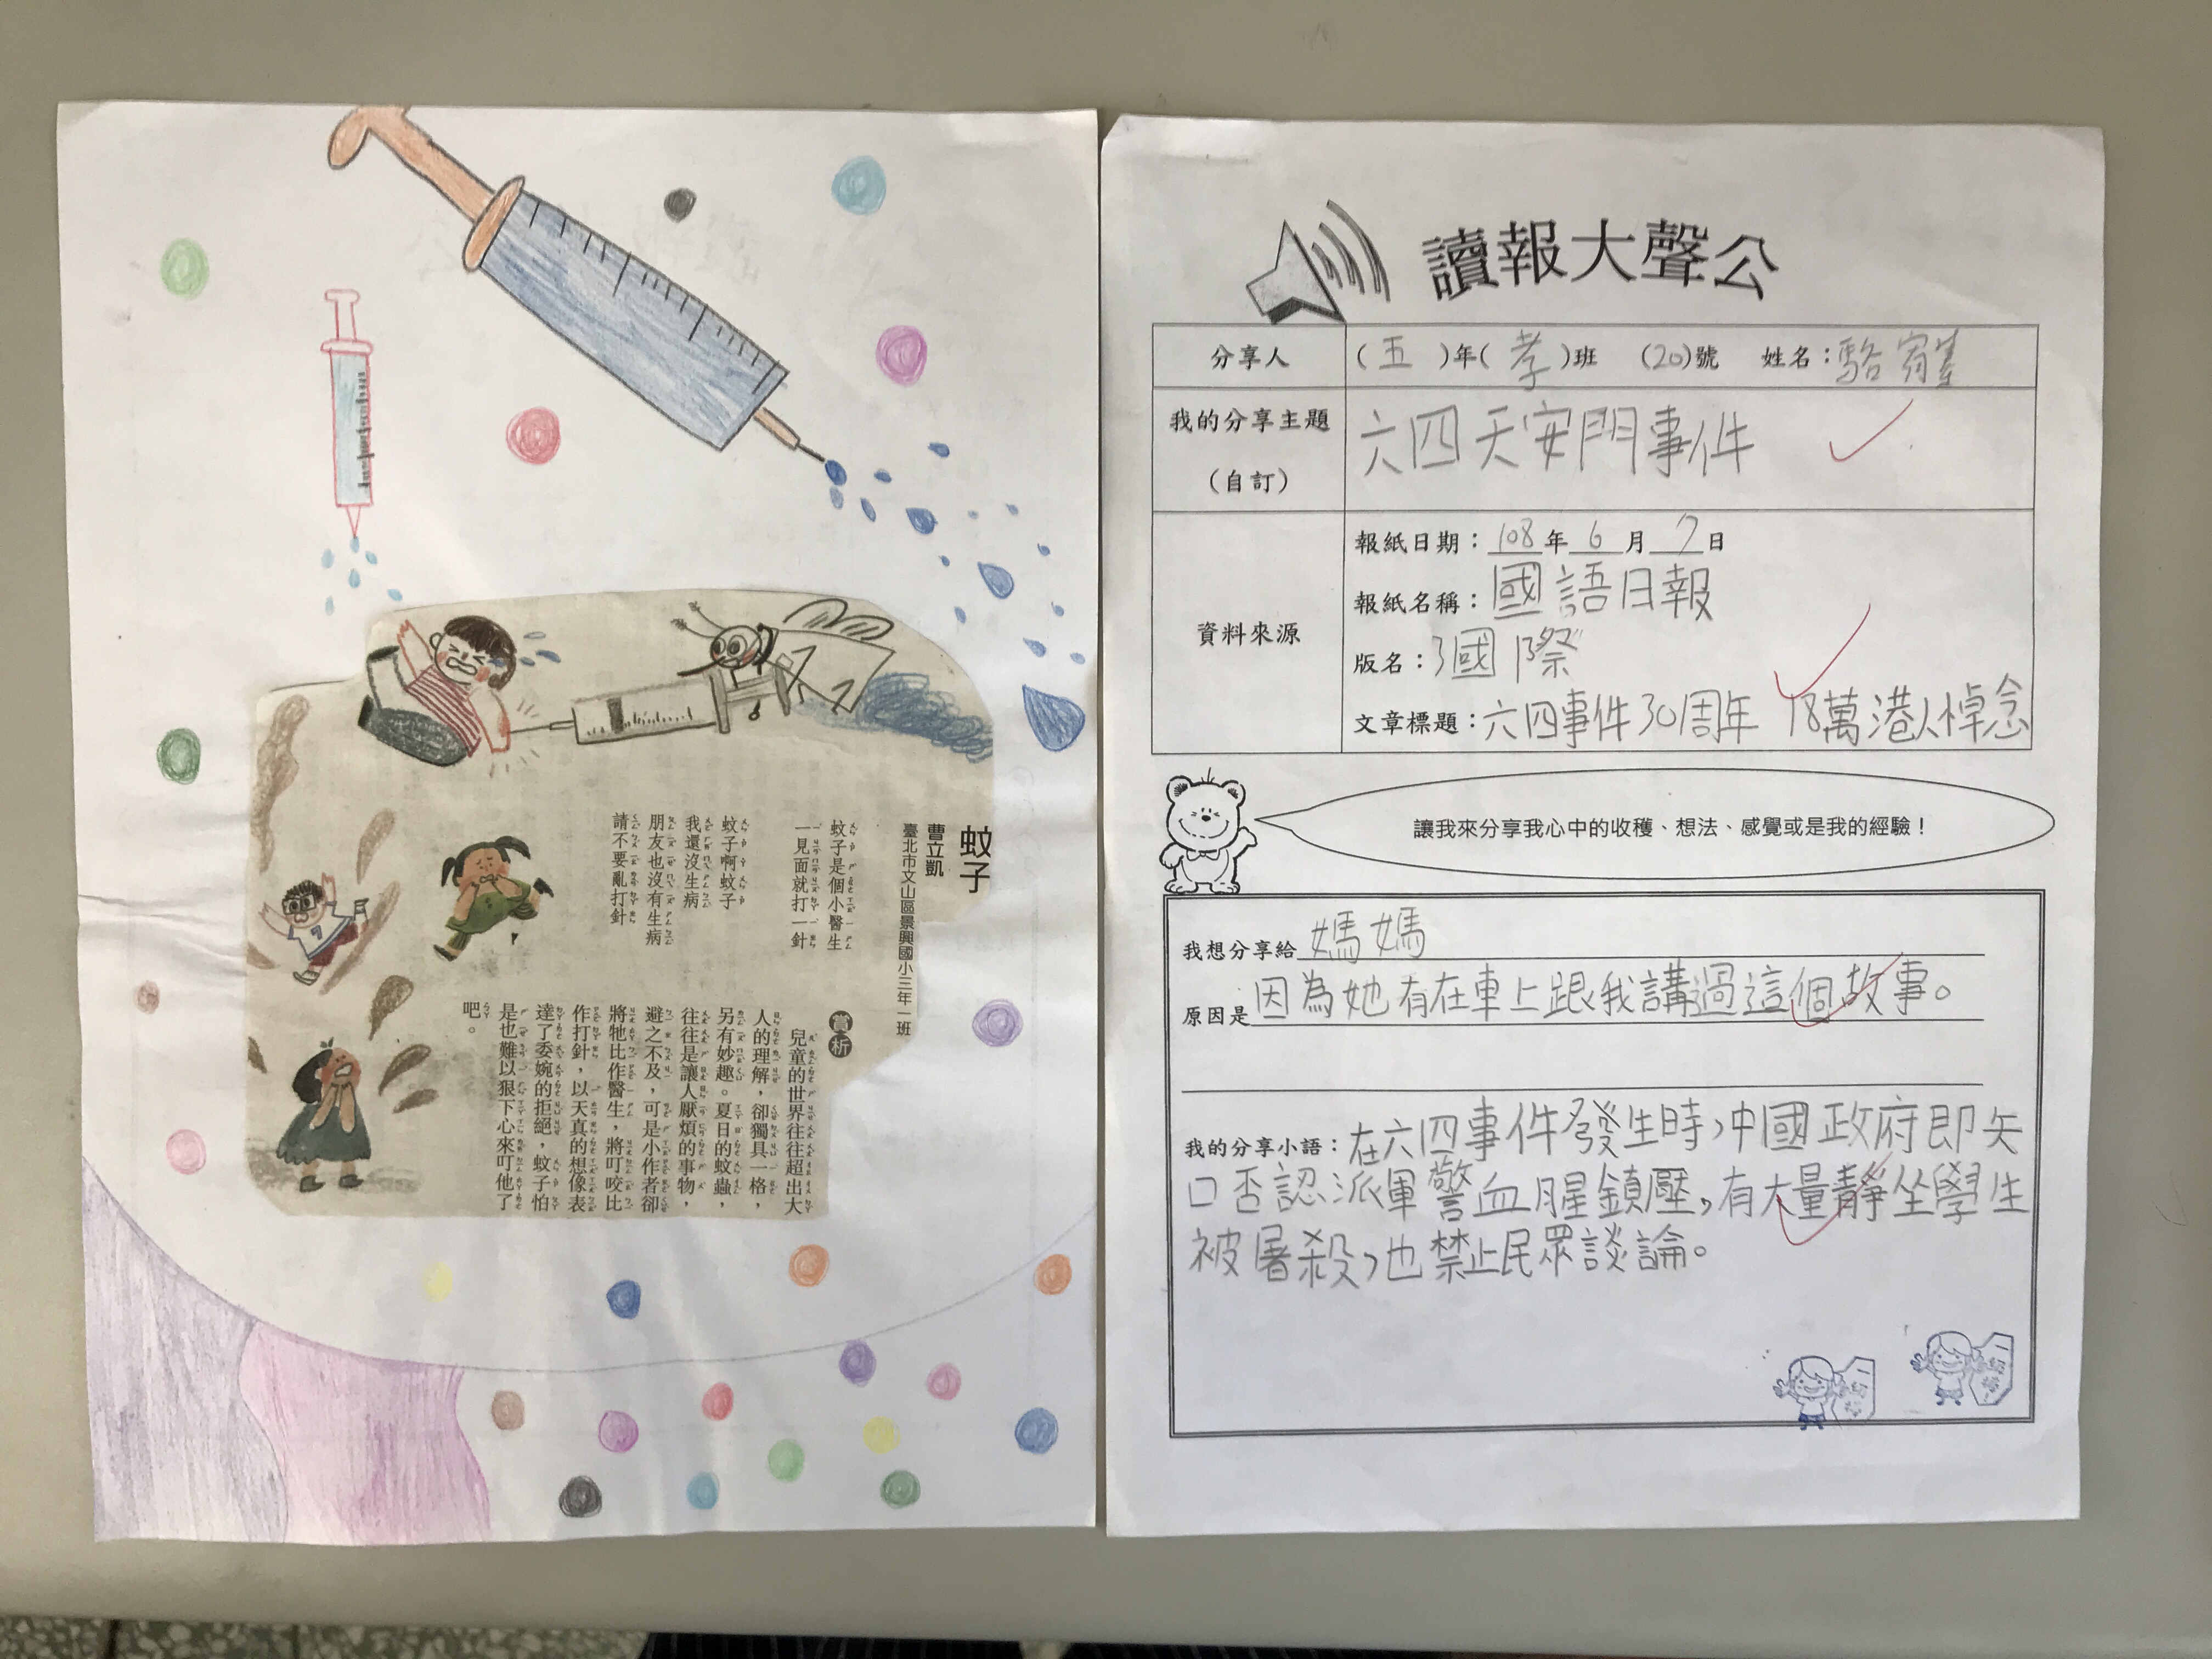 蚊子
曹立凱
臺北市文山區景興國小三年一班
蚊子是個小醫生
一見面就打一針
蚊子啊蚊子
我還沒生病
朋友也沒有生病
請不要亂打針
賞析
兒童的世界往往超出大
人的理解，卻獨具一格，
另有妙趣。夏日的蚊蟲，
往往是讓人厭煩的事物，
避之不及，可是小作者卻
將牠比作醫生，將叮咬比
作打針，以天真的想像表
達了委婉的拒絕，蚊子怕
是也難以狠下心來叮他了
吧。
讀報大聲公
分享人 (五)年(孝)班 (20)號 姓名：駱
我的分享主題 六四天安門事件
(自訂)
資料來源
報紙日期：108年6月7日
報紙名稱：國語日報
版名：3國際
文章標題：六四事件30周年 18萬港人悼念
讓我來分享我心中的收穫、想法、感覺或是我的經驗！
我想分享給媽媽
原因是因為她有在車上跟我講過這個故事。
我的分享小語：在六四事件發生時，中國政府即矢
口否認派軍警血腥鎮壓，有大量靜坐學生
被屠殺，也禁止民眾談論。